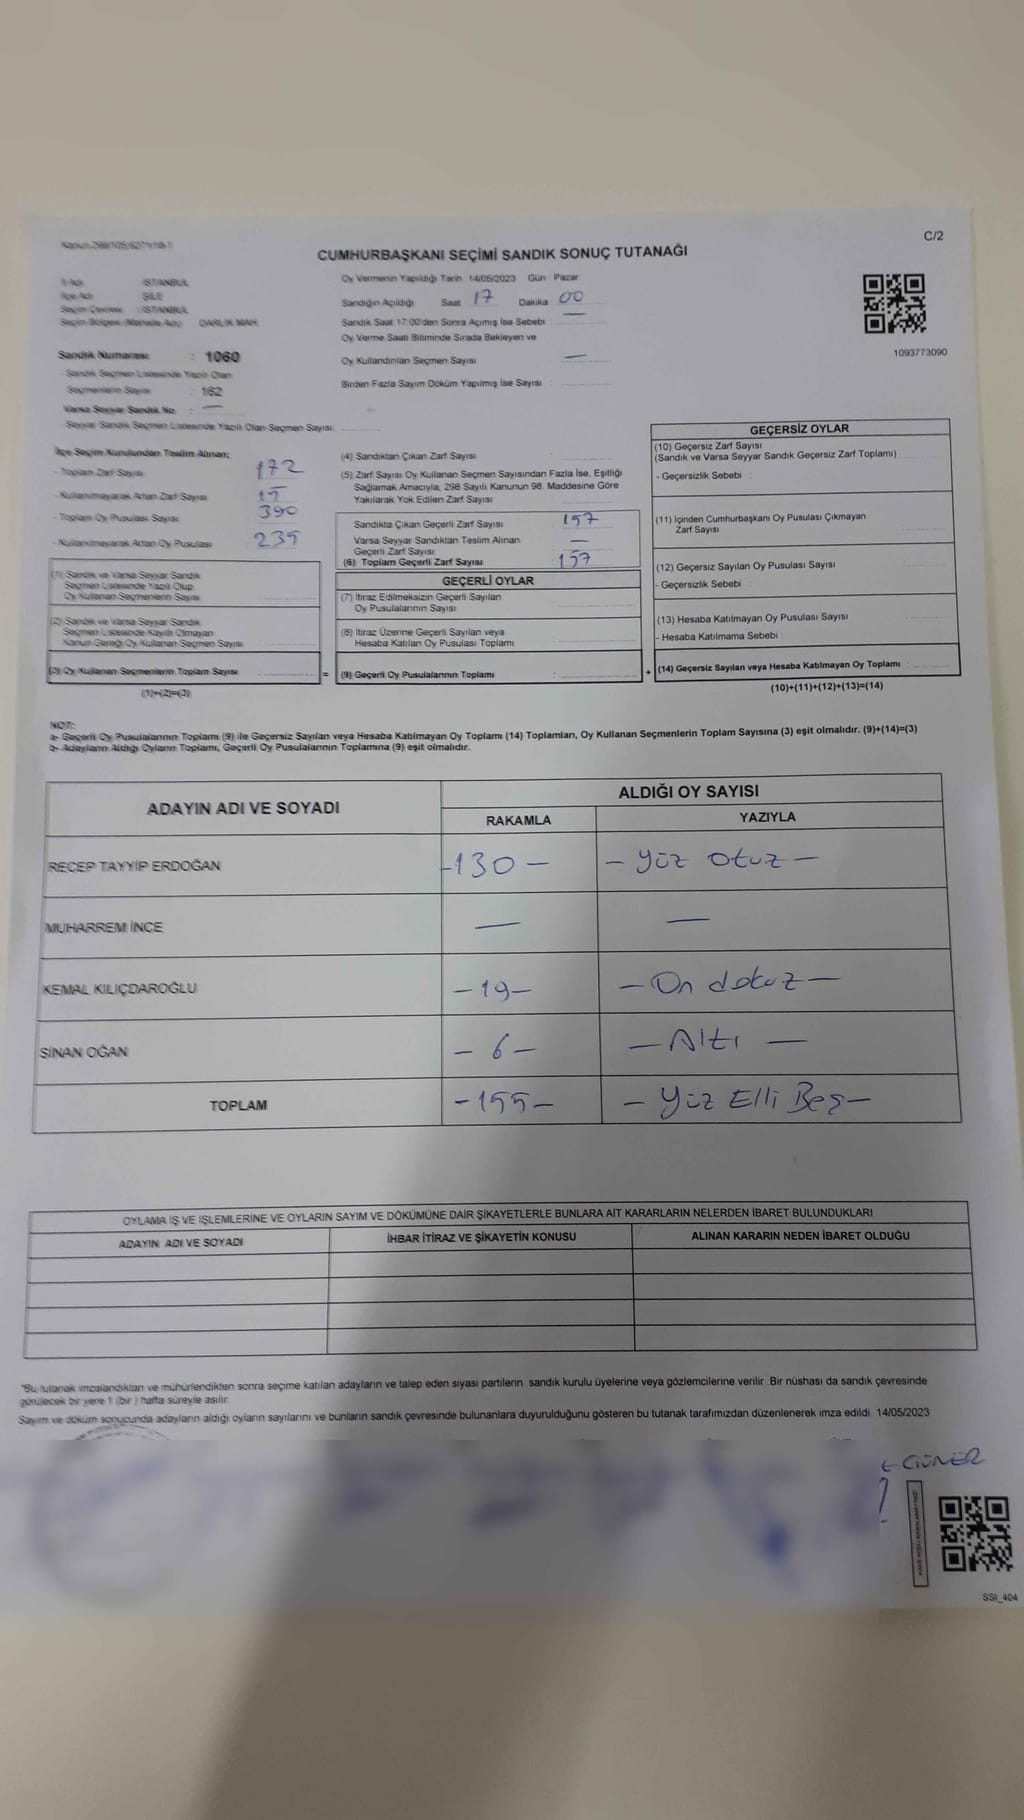 Kanun:298/105;6271/18-1
C/2
CUMHURBAŞKANI SEÇİMİ SANDIK SONUÇ TUTANAĞI
İl Adı : İSTANBUL
İlçe Adı : ŞİLE
Seçim Çevresi : İSTANBUL
Seçim Bölgesi (Mahalle Adı) : DARLIK MAH.
Sandık Numarası : 1060
- Sandık Seçmen Listesinde Yazılı Olan
Seçmenlerin Sayısı : 162
Varsa Seyyar Sandık No : —
- Seyyar Sandık Seçmen Listesinde Yazılı Olan Seçmen Sayısı:
Oy Vermenin Yapıldığı Tarih :14/05/2023 Gün : Pazar
Sandığın Açıldığı Saat : 17 Dakika : 00
Sandık Saat 17:00'den Sonra Açımış İse Sebebi : —
Oy Verme Saati Bitiminde Sırada Bekleyen ve
Oy Kullandırılan Seçmen Sayısı : —
Birden Fazla Sayım Döküm Yapılmış İse Sayısı :
1093773090
İlçe Seçim Kurulundan Teslim Alınan;
- Toplam Zarf Sayısı : 172
- Kullanılmayarak Artan Zarf Sayısı : 15
- Toplam Oy Pusulası Sayısı : 390
- Kullanılmayarak Artan Oy Pusulası : 235
(1) Sandık ve Varsa Seyyar Sandık
Seçmen Listesinde Yazılı Olup
Oy Kullanan Seçmenlerin Sayısı :
(2) Sandık ve Varsa Seyyar Sandık
Seçmen Listesinde Kayıtlı Olmayan
Kanun Gereği Oy Kullanan Seçmen Sayısı :
(3) Oy Kullanan Seçmenlerin Toplam Sayısı :
(1)+(2)=(3)
(4) Sandıktan Çıkan Zarf Sayısı :
(5) Zarf Sayısı Oy Kullanan Seçmen Sayısından Fazla İse, Eşitliği
Sağlamak Amacıyla, 298 Sayılı Kanunun 98. Maddesine Göre
Yakılarak Yok Edilen Zarf Sayısı :
Sandıkta Çıkan Geçerli Zarf Sayısı : 157
Varsa Seyyar Sandıktan Teslim Alınan
Geçerli Zarf Sayısı : —
(6) Toplam Geçerli Zarf Sayısı : 157
GEÇERLİ OYLAR
(7) İtiraz Edilmeksizin Geçerli Sayılan
Oy Pusulalarının Sayısı :
(8) İtiraz Üzerine Geçerli Sayılan veya
Hesaba Katılan Oy Pusulası Toplamı :
= (9) Geçerli Oy Pusulalarının Toplamı :
GEÇERSİZ OYLAR
(10) Geçersiz Zarf Sayısı
(Sandık ve Varsa Seyyar Sandık Geçersiz Zarf Toplamı) :
- Geçersizlik Sebebi :
(11) İçinden Cumhurbaşkanı Oy Pusulası Çıkmayan
Zarf Sayısı :
(12) Geçersiz Sayılan Oy Pusulası Sayısı :
- Geçersizlik Sebebi :
(13) Hesaba Katılmayan Oy Pusulası Sayısı :
- Hesaba Katılmama Sebebi :
+ (14) Geçersiz Sayılan veya Hesaba Katılmayan Oy Toplamı :
(10)+(11)+(12)+(13)=(14)
NOT:
a- Geçerli Oy Pusulalarının Toplamı (9) ile Geçersiz Sayılan veya Hesaba Katılmayan Oy Toplamı (14) Toplamları, Oy Kullanan Seçmenlerin Toplam Sayısına (3) eşit olmalıdır. (9)+(14)=(3)
b- Adayların Aldığı Oyların Toplamı, Geçerli Oy Pusulalarının Toplamına (9) eşit olmalıdır.
ADAYIN ADI VE SOYADI
ALDIĞI OY SAYISI
RAKAMLA YAZIYLA
RECEP TAYYİP ERDOĞAN -130- -Yüz otuz-
MUHARREM İNCE — —
KEMAL KILIÇDAROĞLU -19- -On dokuz-
SİNAN OĞAN -6- -Altı-
TOPLAM -155- -Yüz Elli Beş-
OYLAMA İŞ VE İŞLEMLERİNE VE OYLARIN SAYIM VE DÖKÜMÜNE DAİR ŞİKAYETLERLE BUNLARA AİT KARARLARIN NELERDEN İBARET BULUNDUKLARI
ADAYIN ADI VE SOYADI İHBAR İTİRAZ VE ŞİKAYETİN KONUSU ALINAN KARARIN NEDEN İBARET OLDUĞU
*Bu tutanak imzalandıktan ve mühürlendikten sonra seçime katılan adayların ve talep eden siyasi partilerin sandık kurulu üyelerine veya gözlemcilerine verilir .Bir nüshası da sandık çevresinde
görülecek bir yere 1 (bir ) hafta süreyle asılır.
Sayım ve döküm sonucunda adayların aldığı oyların sayılarını ve bunların sandık çevresinde bulunanlara duyurulduğunu gösteren bu tutanak tarafımızdan düzenlenerek imza edildi. 14/05/2023
GÜNER
SSI_404